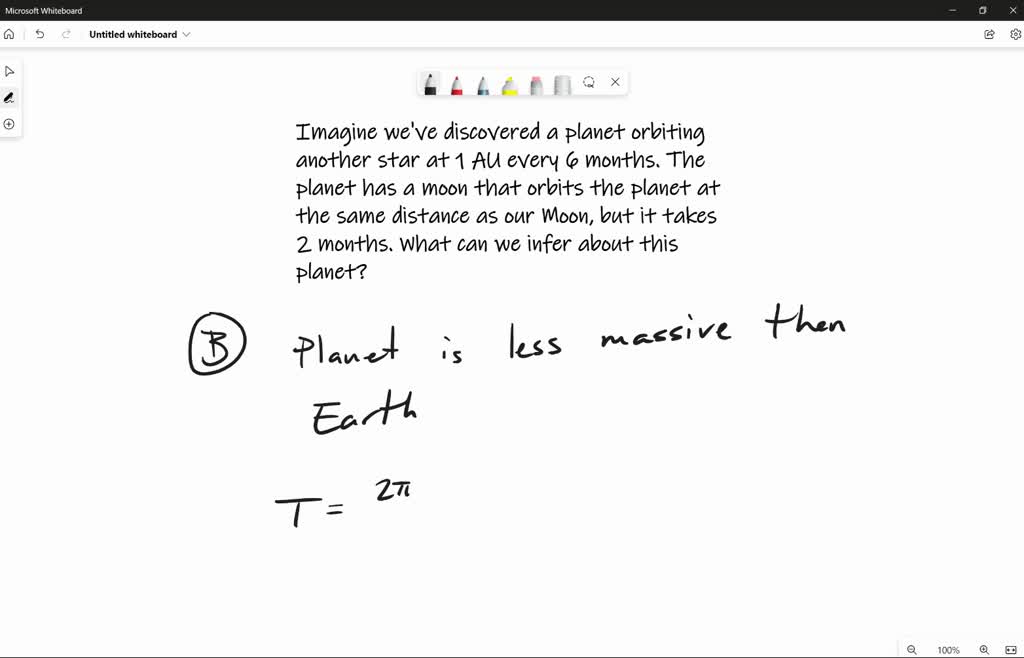 Microsoft Whiteboard
Untitled whiteboard
Imagine we've discovered a planet orbiting
another star at 1 AU every 6 months. The
planet has a moon that orbits the planet at
the same distance as our Moon, but it takes
2 months. What can we infer about this
planet?
B Planet is less massive then
Earth
T = 2π
100%